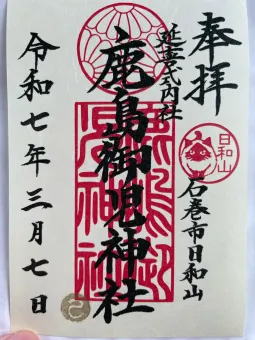 奉拝
延喜式内社
石巻市日和山
日和山
鹿島御児神社
令和七年三月七日